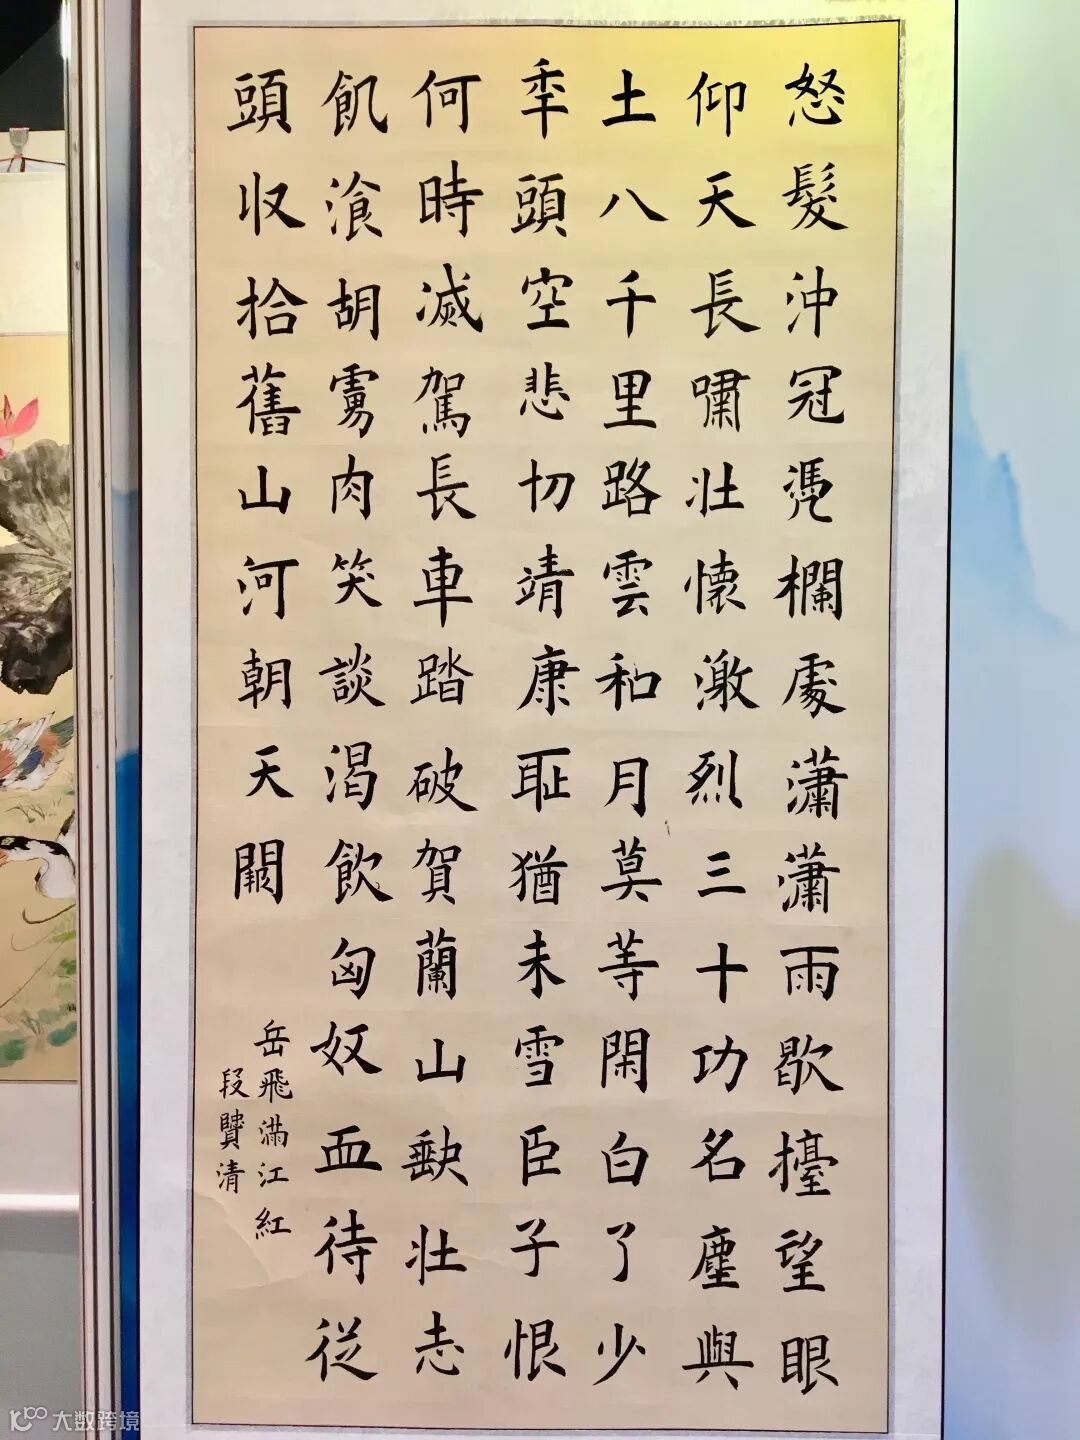 怒髮沖冠凴欄處瀟瀟雨歇擡望眼
仰天長嘯壯懷激烈三十功名塵與
土八千里路雲和月莫等閑白了少
秊頭空悲切靖康恥猶未雪臣子恨
何時滅駕長車踏破賀蘭山缺壯志
飢湌胡虜肉笑談渴飲匈奴血待從
頭收拾舊山河朝天闕
岳飛滿江紅
段贒清
大数跨境